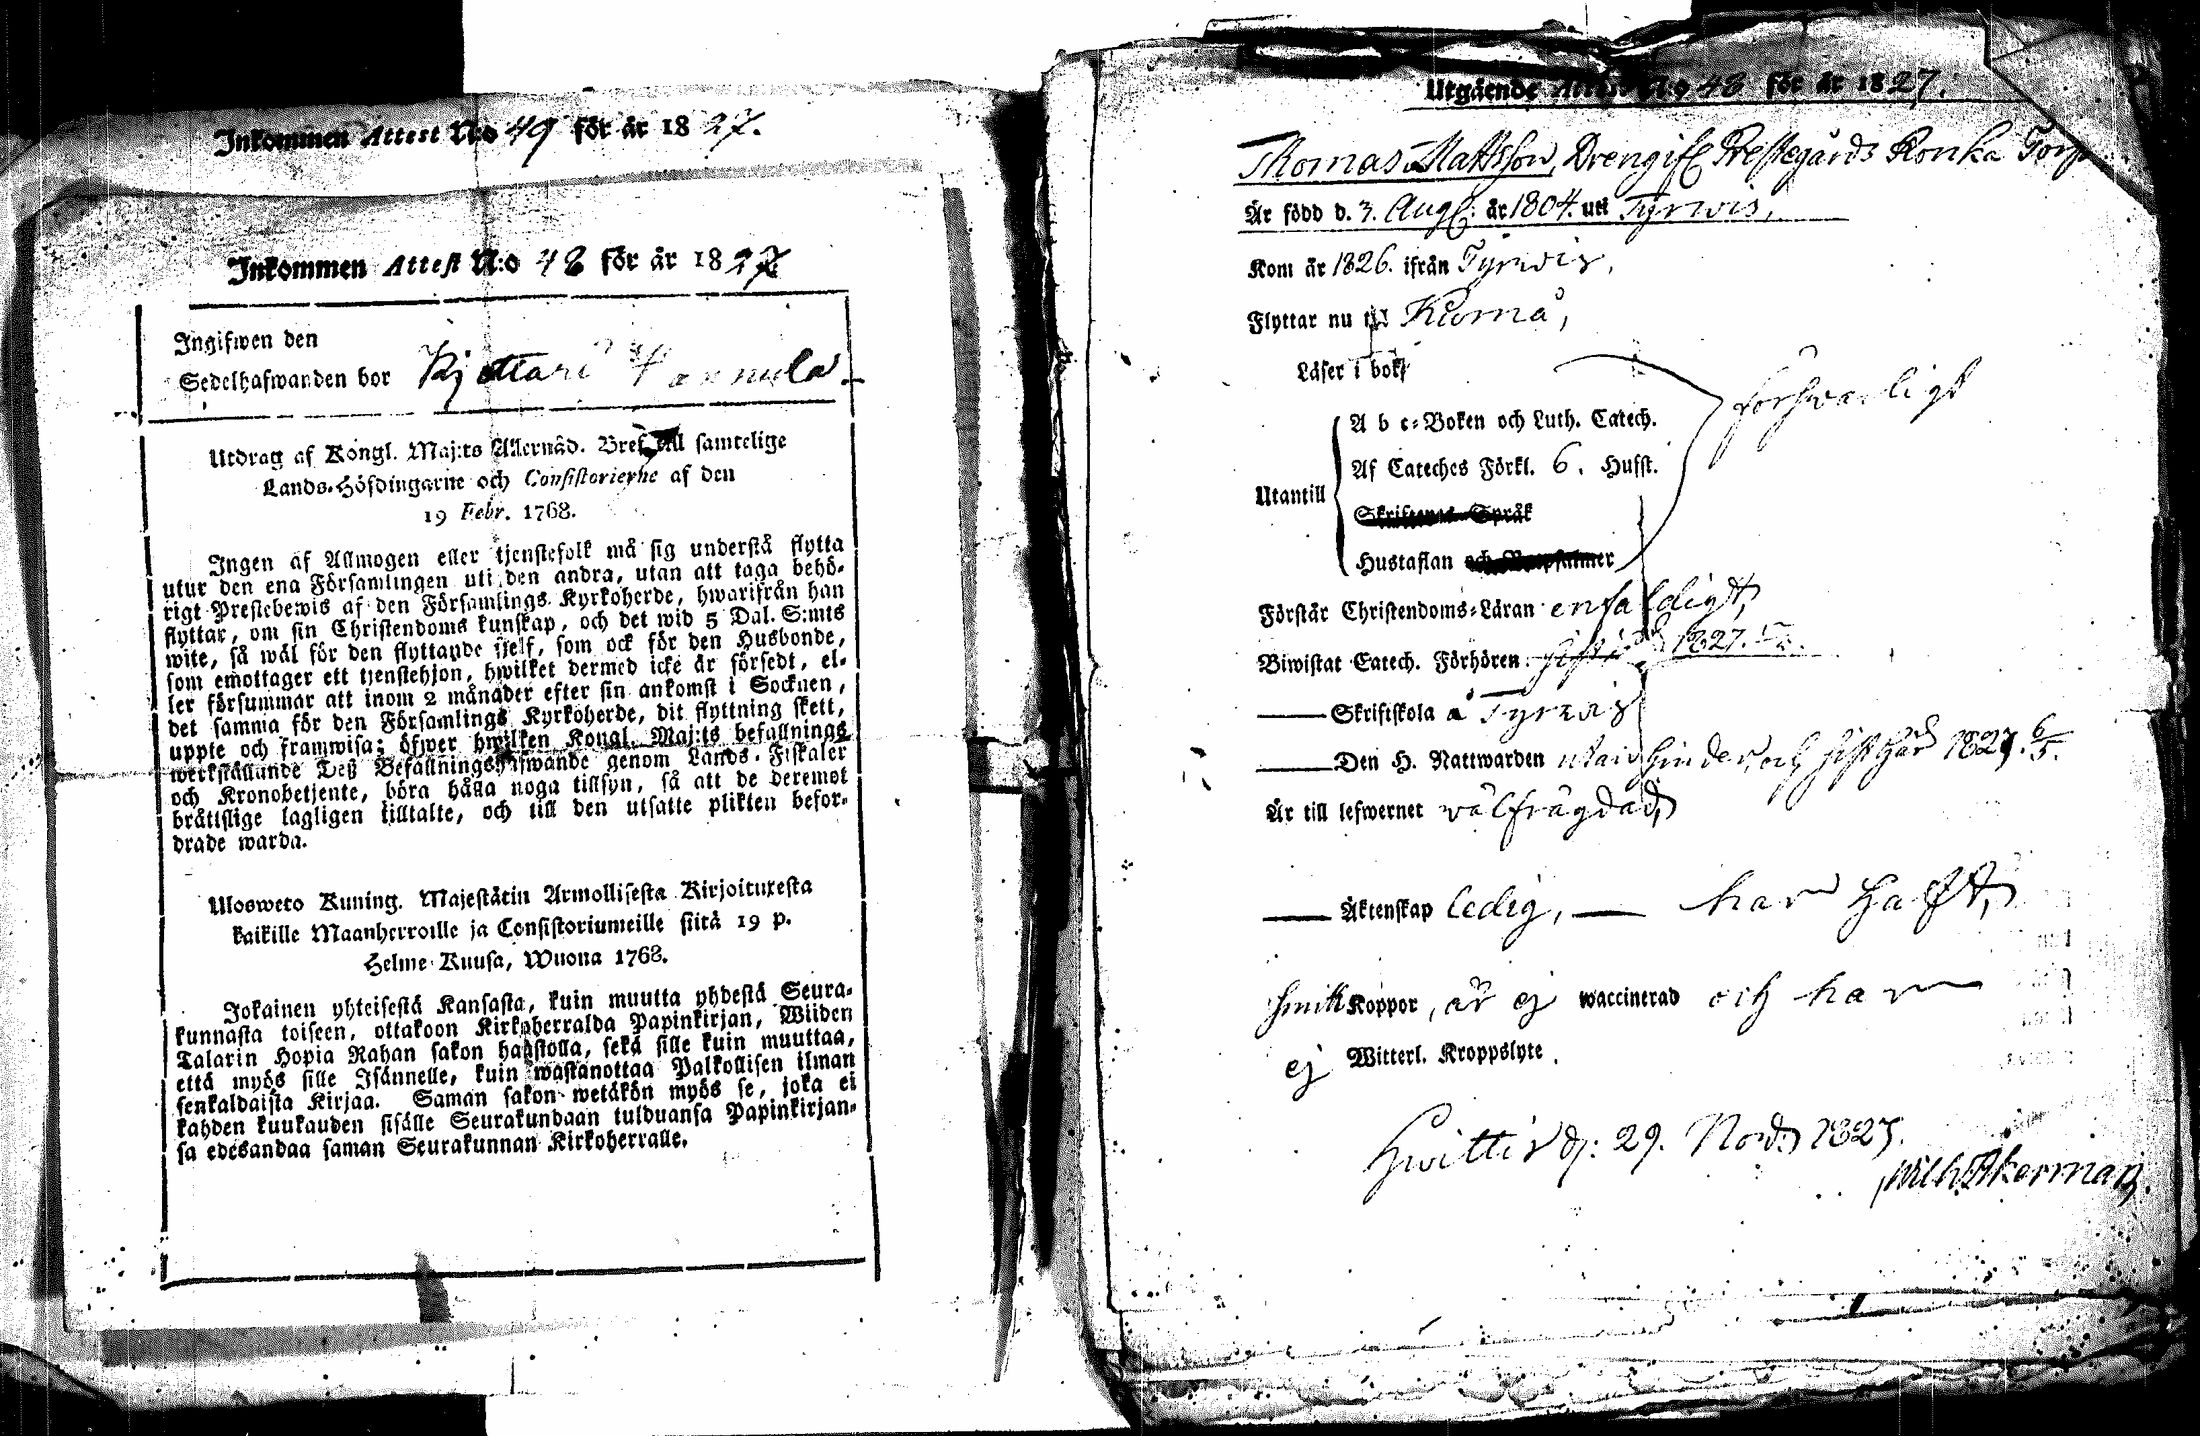 Inkommen Attest No 49 för år 1827.
Inkommen Attest N:o 48 för år 1827.
Ingifwen den
Sedelhafwanden bor Kjottari Hannula
Utdrag af Kongl. Maj:ts Allernåd. Bref till samtelige
Lands-Höfdingarne och Consistorierne af den
19 Febr. 1768.
Ingen af Allmogen eller tjenstefolk må sig understå flytta
utur den ena Församlingen uti den andra, utan att taga behö-
rigt Prestebewis af den Församlings Kyrkoherde, hwarifrån han
flyttar, om sin Christendoms kunskap, och det wid 5 Dal. S:mts
wite, så wäl för den flyttande sjelf, som ock för den Husbonde,
som emottager ett tjenstehjon, hwilket dermed icke är försedt, el-
ler försummar att inom 2 månader efter sin ankomst i Socknen,
det samma för den Församlings Kyrkoherde, dit flyttning skett,
uppte och framwisa; öfwer hwilken Kongl. Maj:ts befallnings
werkställande Deß Befallningshafwande genom Lands-Fiskaler
och Kronobetjente, böra hålla noga tillsyn, så att de deremot
bråttslige lagligen tilltalte, och till den utsatte plikten befor-
drade warda.
Ulosweto Kuning. Majestätin Armollisesta Kirjoituxesta
kaikille Maanherroille ja Consistoriumeille siitä 19 p.
Helme-Kuusa, Wuona 1768.
Jokainen yhteisestä Kansasta, kuin muutta yhdestä Seura-
kunnasta toiseen, ottakoon Kirkoherralda Papinkirjan, Wiiden
Talarin Hopia Rahan sakon haastolla, sekä sille kuin muuttaa,
että myös sille Isännelle, kuin wastanottaa Palkollisen ilman
senkaldaista Kirjaa. Saman sakon wetäkön myös se, joka ei
kahden kuukauden sisälle Seurakundaan tulduansa Papinkirjan-
sa edesandaa saman Seurakunnan Kirkoherralle.
Utgående Attest N:o 48 för år 1827.
Thomas Mattsson, Dreng ifr Prestegårds Ronka Torp
Är född d. 3. Aug: år 1804. uti Tyrwis,
Kom år 1826. ifrån Tyrwis,
Flyttar nu till Kumo,
Läser i bok
förswarligt
A b c-Boken och Luth. Catech.
Af Cateches Förkl. 6. Husst.
Utantill
Skriftenes Språk
Hustaflan och Botpsalmer
Förstår Christendoms-Läran enfaldigt,
Biwistat Catech. Förhören: sist 1827.
Skriftskola i Tyrwis
Den H. Nattwarden utan hinder, och sist här 1827. 6/5.
Är till lefwernet wälfrägdad,
Äktenskap ledig, — har haft,
Smitt Koppor, är ej waccinerad och har
ej Witterl. Kroppslyte.
Hwittis d: 29. Nov: 1827.
Wilh. Åkerman